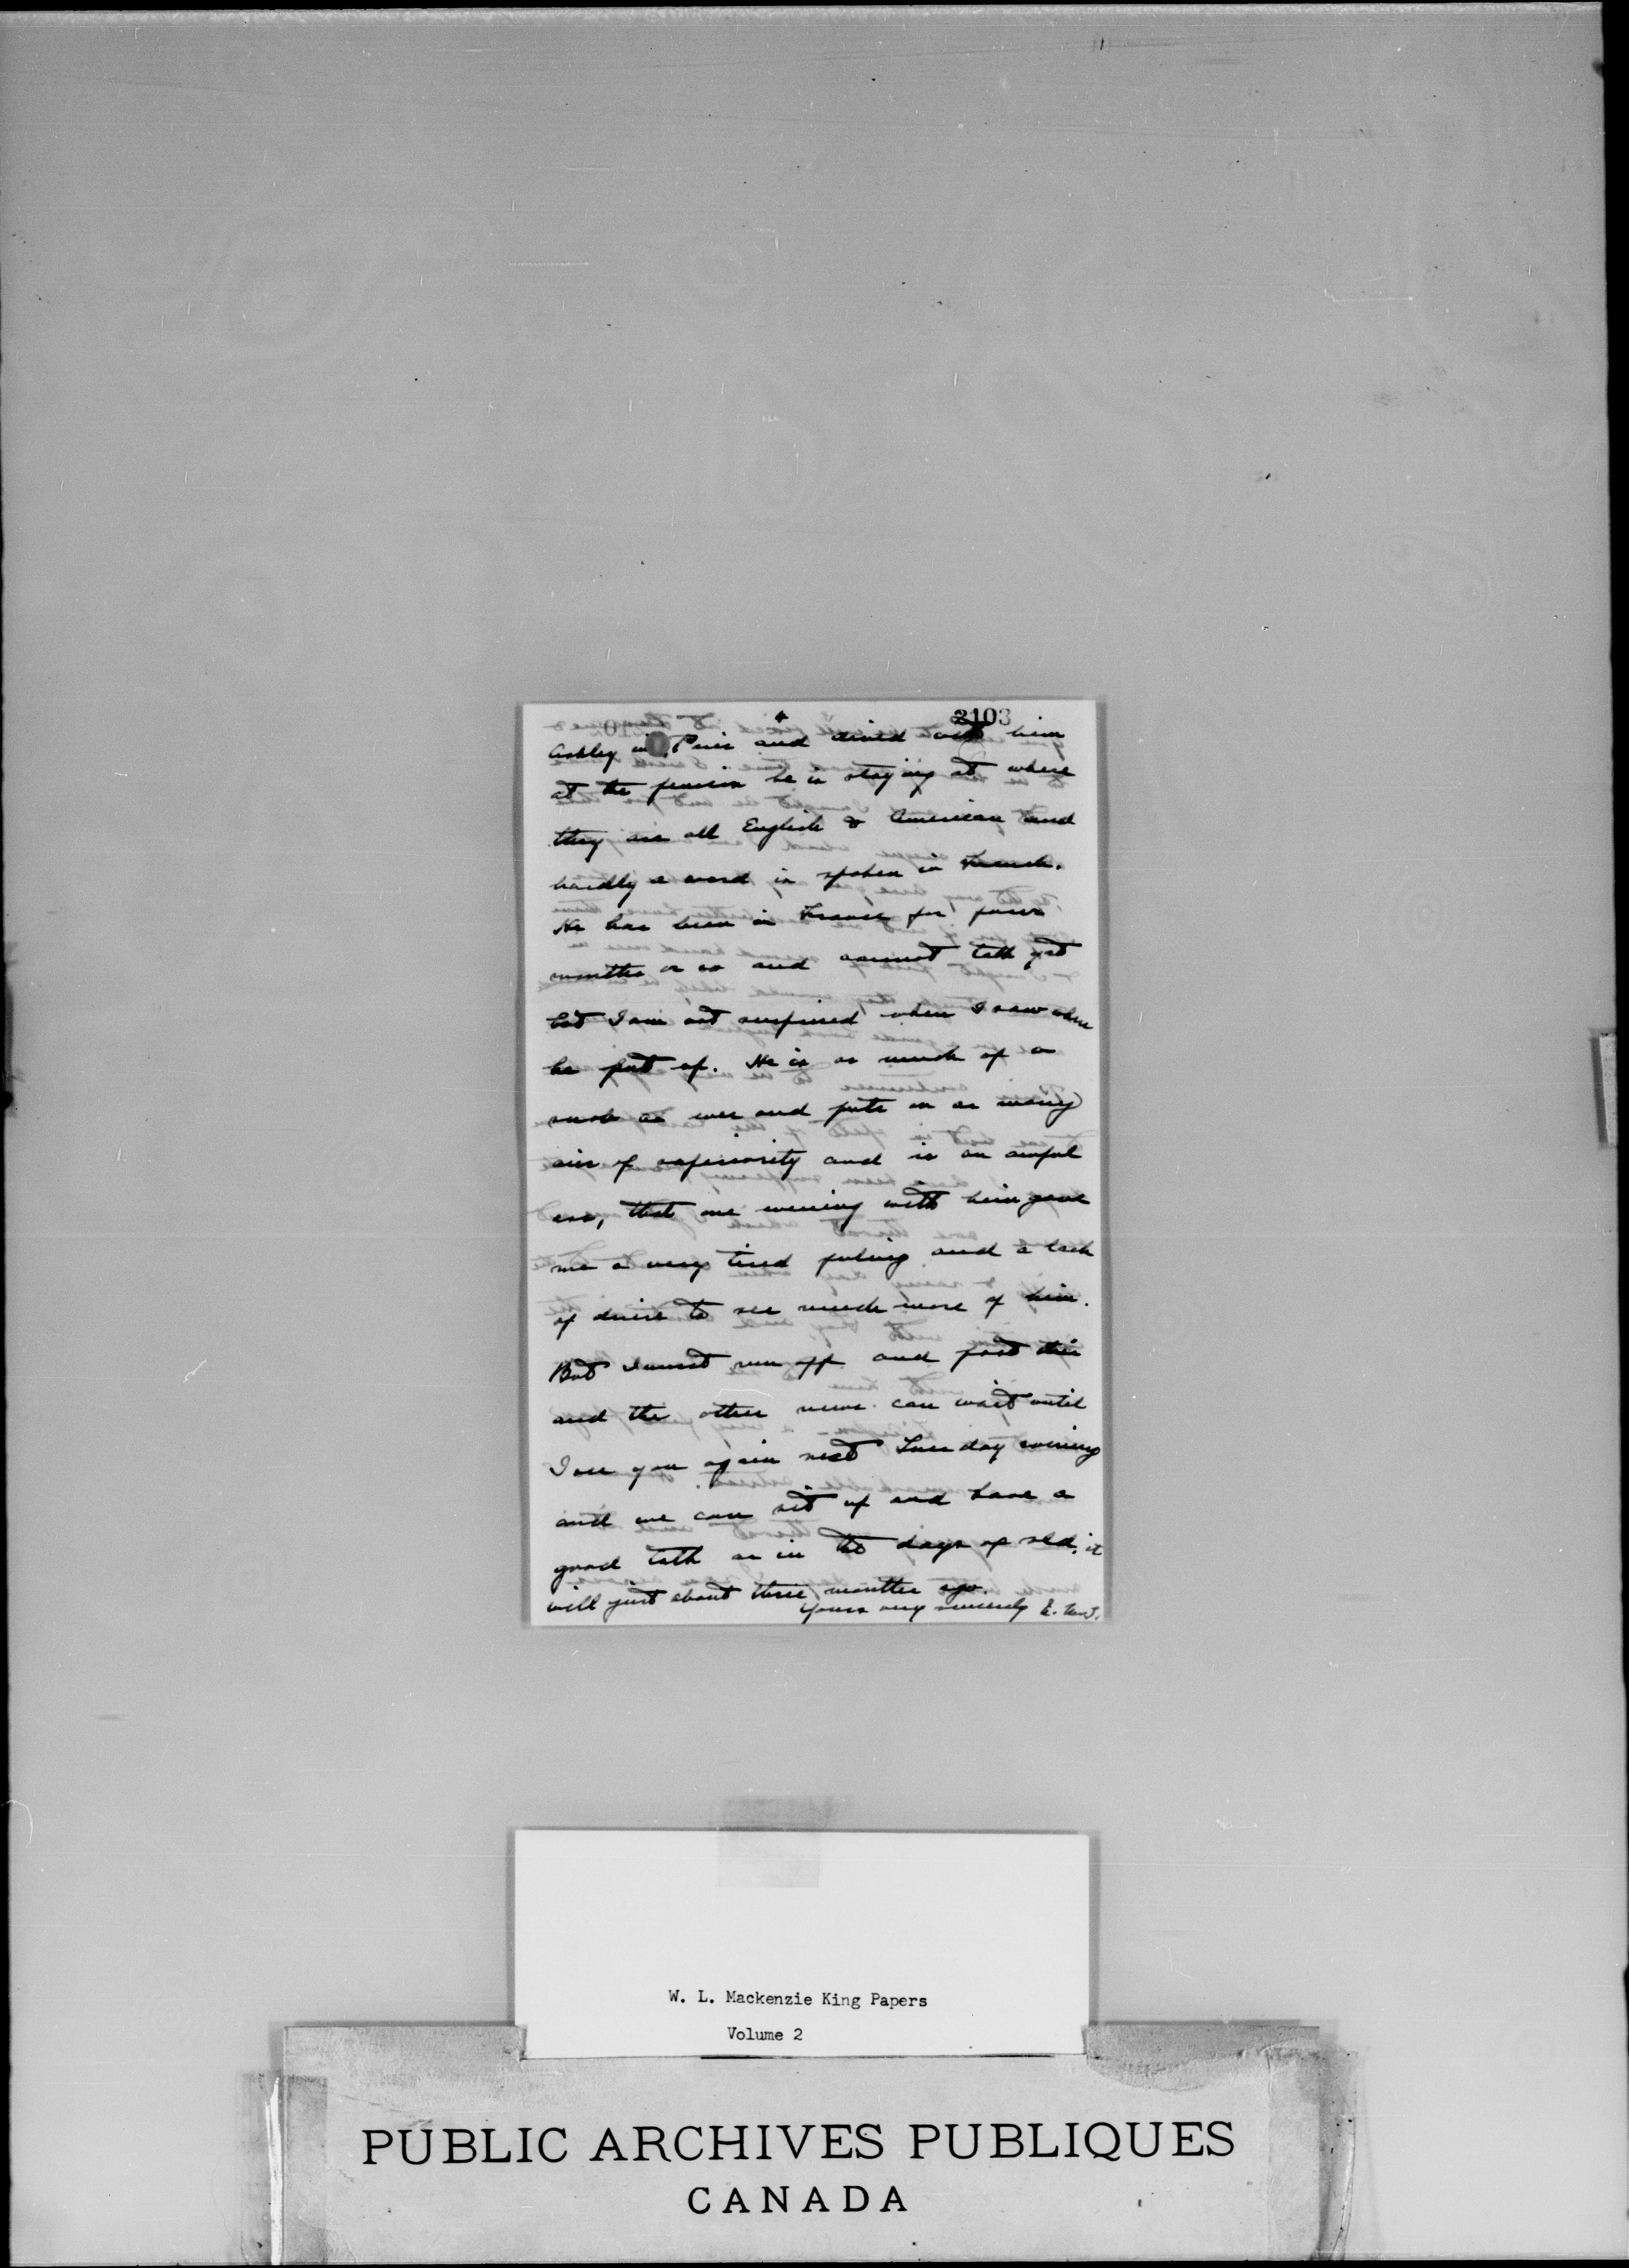 4
2103
Ashley in Paris and dined with him
at the pension he is staying at where
they are all English & American and
hardly a word is spoken in French.
He has been in France for four
months or so and cannot talk yet
but I am not surprised when I saw where
he put up. He is as much of a
snob as ever and puts on as many
airs of superiority and is an awful
, that one evening with him gave
me a very tired feeling and a lack
of desire to see much more of him.
But I must run off and post this
and the other news can wait until
I see you again next Tuesday evening
and we can sit up and have a
good talk as in the days of old, it
will just about three months ago.
Yours very sincerely
W. L. Mackenzie King Papers
Volume 2
PUBLIC ARCHIVES PUBLIQUES
CANADA